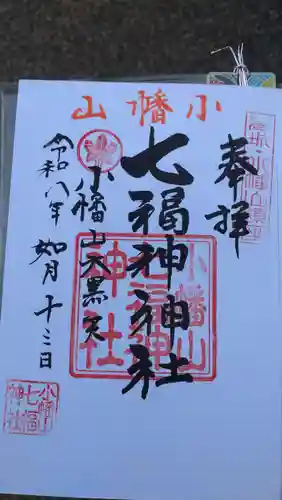 小幡山
奉拝
七福神神社
小幡山大黒天
令和八年 如月十三日
小幡山
七福神
神社
小幡山
七福
神社